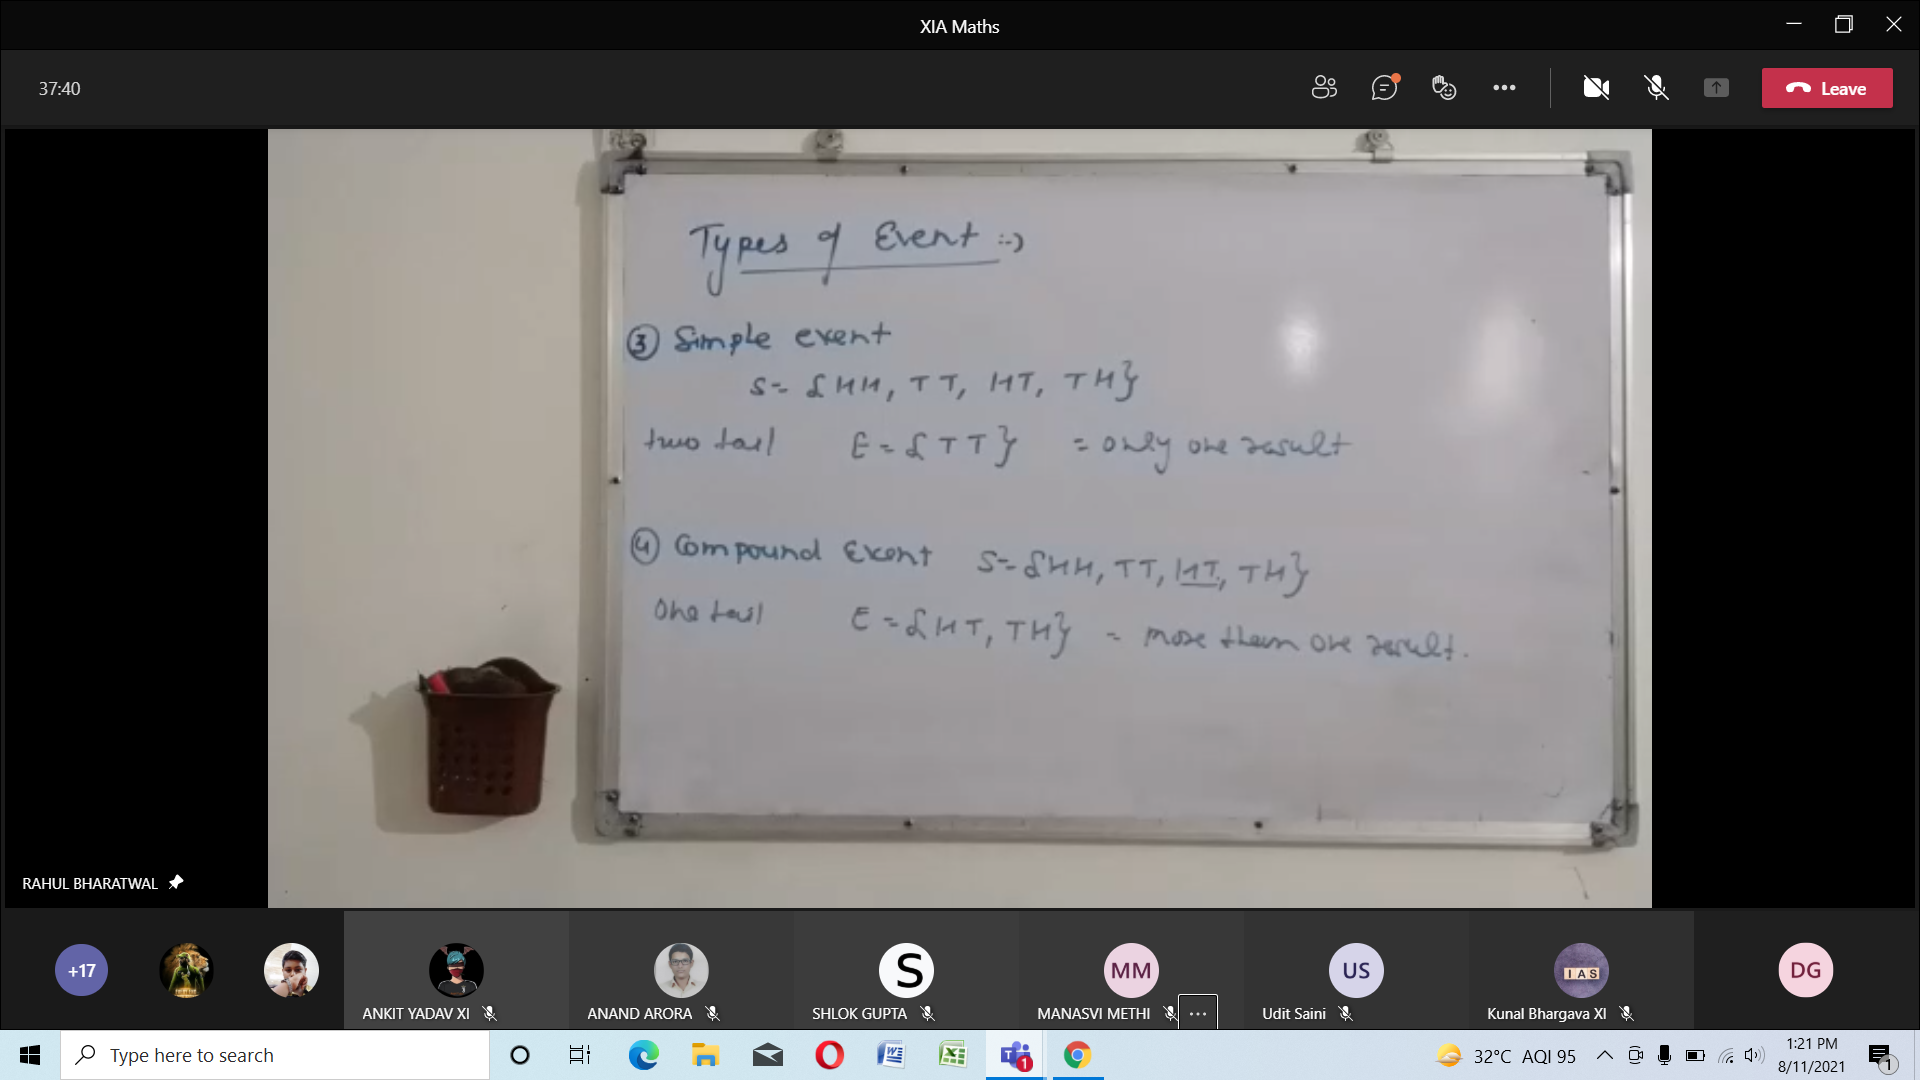 XIA Maths
37:40
Leave
Types of Event :-)
③ Simple event
S = {HH, TT, HT, TH}
two tail E = {TT} = only one result
④ Compound Event S = {HH, TT, HT, TH}
One tail E = {HT, TH} = more than one result.
RAHUL BHARATWAL
+17
ANKIT YADAV XI
ANAND ARORA
S
SHLOK GUPTA
MM
MANASVI METHI
US
Udit Saini
IAS
Kunal Bhargava XI
DG
Type here to search
1
32°C AQI 95
1:21 PM
8/11/2021
1